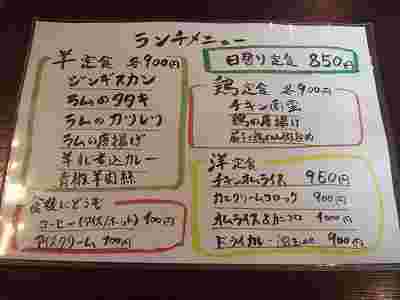 ランチメニュー
羊定食 各900円
ジンギスカン
ラムのタタキ
ラムのカツレツ
ラムの唐揚げ
羊肉煮込カレー
青椒羊肉絲
食後にどうぞ
コーヒー(アイス/ホット) 100円
アイスクリーム 100円
日替り定食 850円
鶏定食 各900円
チキン南蛮
鶏の唐揚げ
洋定食
チキンオムライス 950円
カニクリームコロッケ 900円
オムライス&カニコロ 1000円
ドライカレー 900円